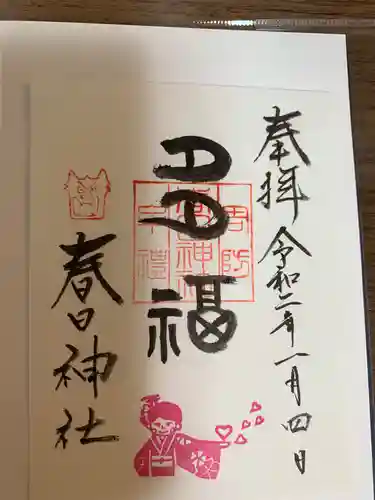 奉拝 令和二年一月四日
福
周防
春日神社
牟禮
春日神社